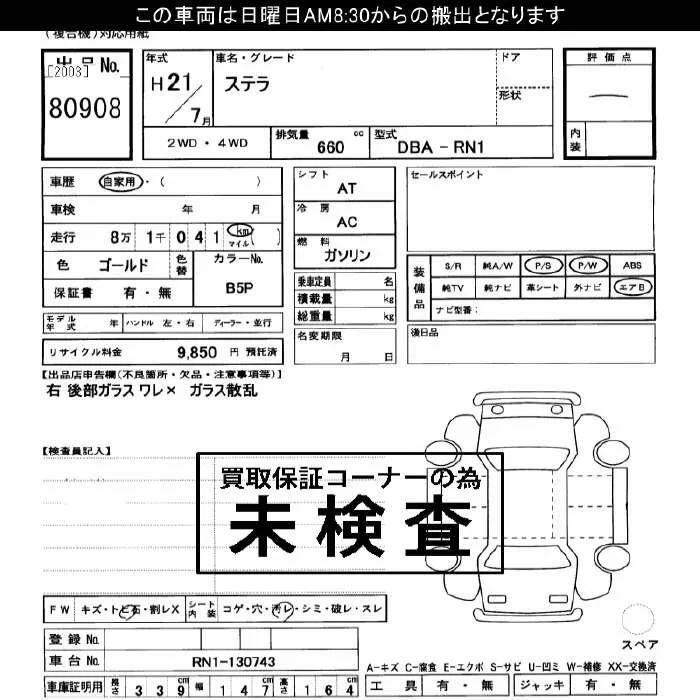 この車両は日曜日AM8:30からの搬出となります
(複合機)対応用紙
出品 No.
[2003]
80908
年式
H21/7月
車名・グレード
ステラ
ドア
形状
2WD・4WD
排気量 660 cc
型式 DBA-RN1
評価点
内装
車歴 自家用・( )
車検 年 月
走行 8万 1千 0 4 1 km マイル ( )
色 ゴールド 色替
カラーNo. B5P
保証書 有・無
シフト AT
冷房 AC
燃料 ガソリン
乗車定員 名
積載量 kg
総重量 kg
セールスポイント
装備品
S/R 純A/W P/S P/W ABS
純TV 純ナビ 革シート 外ナビ エアB
ナビ型番:
モデル年式 年 ハンドル 左・右 ディーラー・並行
名変期限 月 日
後日品
リサイクル料金 9,850 円 預託済
【出品店申告欄(不良箇所・欠品・注意事項等)】
右 後部ガラス ワレ× ガラス散乱
【検査員記入】
買取保証コーナーの為
未検査
FW キズ・トビ石・割レX シート内装 コゲ・穴・汚レ・シミ・破レ・スレ
登録 No.
車台 No. RN1-130743
車庫証明用 長さ 339cm 幅 147cm 高さ 164cm
スペア
A-キズ C-腐食 E-エクボ S-サビ U-凹ミ W-補修 XX-交換済
工具 有・無 ジャッキ 有・無